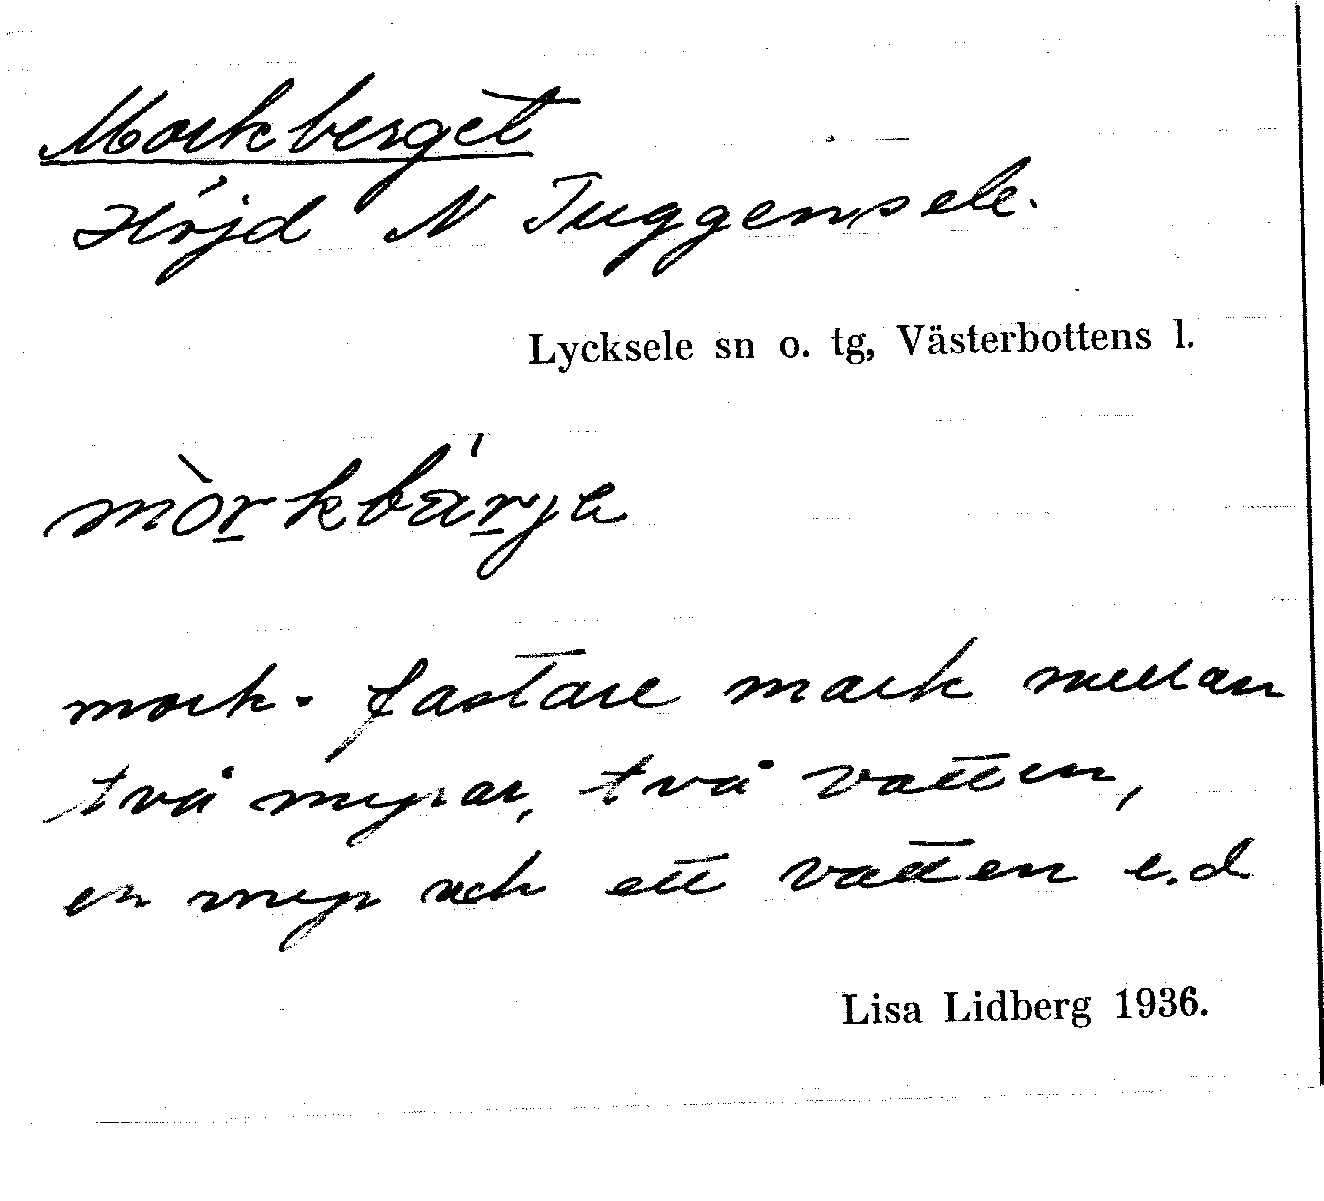 Morkberget
Höjd N Tuggensele.
Lycksele sn o. tg, Västerbottens l.
mòrkbä́rjа
mork = fastare mark mellan
två myrar, två vatten,
en myr och ett vatten e.d
Lisa Lidberg 1936.